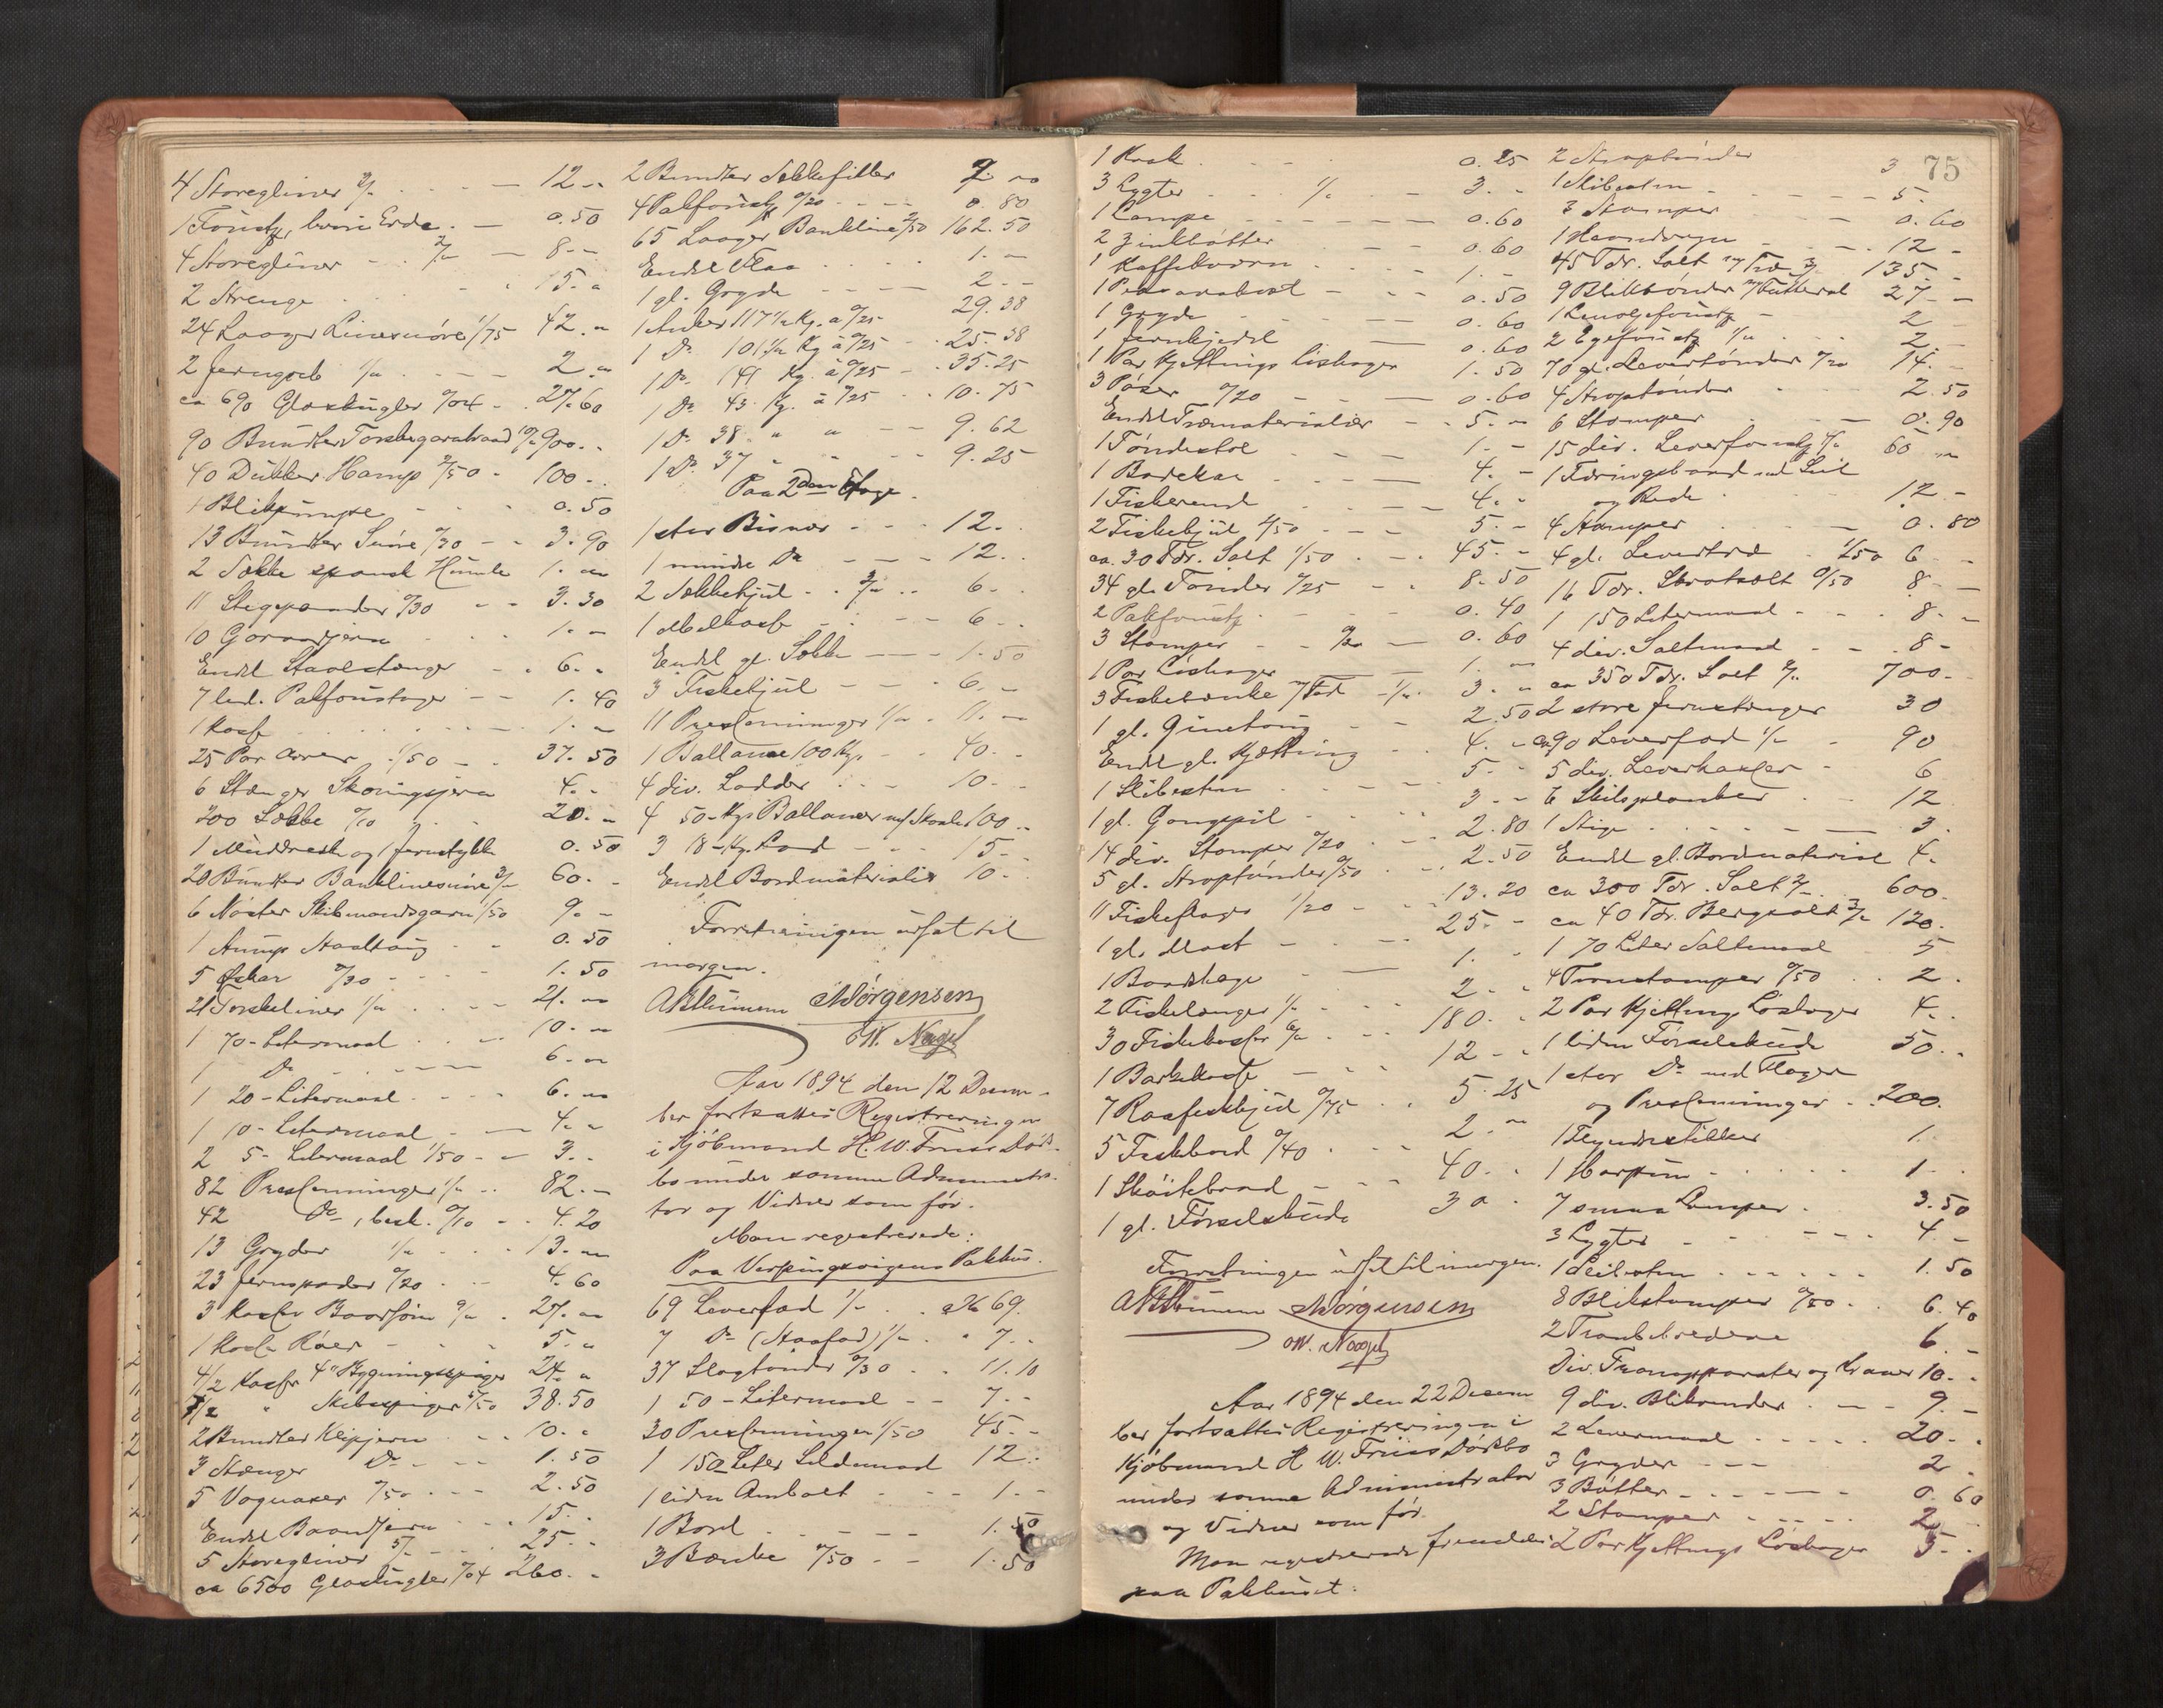 4 Storegliner 3/- 12. -
1 Fustg, brun Erde 0.50
4 Storegliner 2/- 8. -
2 Strenge 15. -
24 Laager Linesnöre 1/75 42. -
2 Jerngreb 1/- 2. -
ca 690 Glaskugler 0/04 27.60
90 Bundter Torskegarntraad 10/- 900. -
40 Dukker Hamp 2/50 100. -
1 Blikpumpe 0.50
13 Bundter Snöre 0/30 3.90
2 Sække spansk Humle 1. -
11 Stegepander 0/30 3.30
10 Gorondjern 1. -
Endel Staalstænger 6. -
7 led. Pakfoustager 1.40
1 Kasse 1. -
25 Par Aarer 1/50 37.50
6 Stænger Skoningsjern 4. -
200 Sække 0/10 20. -
1 Mudreske og 1 Jernstykke 0.50
20 Bundter Banklinesnöre 3/- 60. -
6 Nöster Skibmandsgarn 1/50 9. -
1 Stump Staaltoug 0.50
5 Öskar 0/30 1.50
21 Torskeliner 1/- 21. -
1 70-Litermaal 10. -
1 Do 6. -
1 20-Litermaal 6. -
1 10-Litermaal 4. -
2 5-Litermaal 1/50 3. -
82 Presenninger 1/- 82. -
42 Do, besk. 0/10 4.20
13 Gryder 1/- 13. -
23 Jernspader 0/20 4.60
3 Kasser Baadsöm 9/- 27. -
1 Kasse Röer 5. -
4/2 Kasser 4" Bygningsspiger 24. -
7/2 " Skibsspiger 5/50 38.50
2 Bundter Klipjern 10. -
3 Stænger Do 1.50
5 Vognaxer 0/50 2.50
Endel Baandjern 15. -
5 Storegliner 5/- 25. -
ca 6500 Glaskugler 0/04 260. -
2 Bundter Sækkefiller 2. -
4 Pakfoustg 0/20 0.80
65 Laager Bankline 2/50 162.50
Endel Flaa 1. -
1 gl. Gryde 2. -
1 Anker 117 1/2 Kg. a 0/25 29.38
1 Do 101 1/2 Kg a 0/25 25.38
1 Do 141 Kg. a 0/25 35.25
1 Do 43 Kg. a 0/25 10.75
1 Do 38 " " 9.62
1 Do 37 " " 9.25
Paa 2den Etage.
1 stor Bismer 12. -
1 mindre Do 12. -
2 Sækkehjul 3/- 6. -
1 Melkasse 6. -
Endel gl. Sække 1.50
3 Fiskehjul 6. -
11 Presenninger 1/- 11. -
1 Ballance 100 Kgr 40. -
4 div. Lodder 10. -
4 50-Kgs Ballancer m/ Skaaler 100. -
3 18-Kg. Lod 15. -
Endel Bordmaterialier 10. -
Forretningen udsat til
morgen.
A Blumem MJörgensen
O W. Nagel
Aar 1894 den 12 Decem-
ber fortsattes Registreringen
i Kjöbmand H. W. Friiss Döds-
bo under samme Administra-
tor og Vidner som för.
Man registrerede:
Paa Verpingsvigens Pakhus.
69 Leverfad 1/- Kr 69.
7 Do (Staafad) 1/- " 7. -
37 Slogtönder 0/30 11.10
1 50-Litermaal 7. -
30 Presenninger 1/50 45. -
1 150 Liter Sildemaal 12. -
1 liden Ambolt 1. -
1 Bord 1.50
3 Bænke 0/50 1.50
75
1 Kost 0.25
3 Lygter 1/- 3. -
1 Lampe 0.60
2 Zinkbötter 0.60
1 Kaffekværn 1. -
1 Peasavabost 0.50
1 Gryde 0.60
1 Jernkjedel 0.60
1 Par Kjettings Löshager 1.50
3 Pöser 0/20 0.60
Endel Træmaterialier 5. -
1 Töndestol 1. -
1 Badekar 4. -
1 Fiskerend 4. -
2 Fiskehjul 2/50 5. -
ca. 30 Tdr. Salt 1/50 45. -
34 gl. Tönder 0/25 8.50
2 Pakfoustg 0.40
3 Stamper 0/20 0.60
1 Par Löshager 1. -
3 Fiskebænke m/ Fad 1/- 3. -
1 gl. Ginetoug 2.50
Endel gl. Kjætting 4. -
1 Skibsovn 5. -
1 gl. Gangspil 3. -
14 div. Stamper 0/20 2.80
5 gl. Stroptönder 0/50 2.50
11 Fiskeflager 1/20 13.20
1 gl. Mast 25. -
1 Baadshage 1. -
2 Fiskelænger 1/- 2. -
30 Fiskekasser 6/- 180. -
1 Barkekasse 12. -
7 Raafiskhjul 0/75 5.25
5 Fiskbord 0/40 2. -
1 Sköitebaad 40. -
1 gl. Förselsbaad 30. -
Forretningen udsat til imorgen.
A Blumem MJörgensen
O W. Naagel
Aar 1894 den 22 Decem
ber fortsattes Registreringen i
Kjöbmand H W. Friiss Dödsbo
under samme Administrator
og Vidner som för.
Man registrerede fremdeles
paa Pakhuset:
2 Stroptönder 3
1 Skibsovn 5. -
3 Stamper 0.60
1 Haandvogn 12 -
45 Tdr. Salt m/ Træ 3/- 135. -
9 Bliktönder m/ Futteral 27. -
1 Linoljefoustg 2
2 Egefoustg 1/- 2. -
70 gl. Levertönder 0/20 14. -
4 Stroptönder 2.50
6 Stamper 0.90
15 div. Leverfoustg 4/- 60. -
1 Fæ­ringsbaad med Seil
og Rede 12. -
4 Stamper 0.80
4 gl. Leverfad 1/50 6 -
16 Tdr. Skrotsalt 0/50 8 -
1 150 Litermaal 8. -
4 div. Saltmaal 8 -
ca 350 Tdr. Salt 2/- 700. -
2 store Jernstænger 30
ca 90 Leverfad 1/- 90
5 div. Leverkasser 6
6 Skilsplanker 12
1 Stige 3.
Endel gl. Bordmateriale 4.
ca 300 Tdr. Salt 2/- 600.
ca 40 Tdr. Bergsalt 3/- 120.
1 70 Liter Saltmaal 5
4 Transtamper 0/50 2.
2 Par Kjettings Löshager 4. -
1 liden Förselsbaad 50. -
1 stor Do med Flager
og Presenninger 200.
1 Flyndrestikker 1.
1 Harpun 1. -
7 smaa Lamper 3.50
3 Lygter 4. -
1 Skibsovn 1.50
8 Blikstamper 0/80 6.40
2 Tranbebredere 6. -
Div. Tranapparater og Kraner 10. -
9 div. Blikrender 9. -
2 Levermaal 20. -
3 Gryder 2.
3 Bötter 0.60
2 Stamper 2.
2 Par Kjettings Löshager 3. -